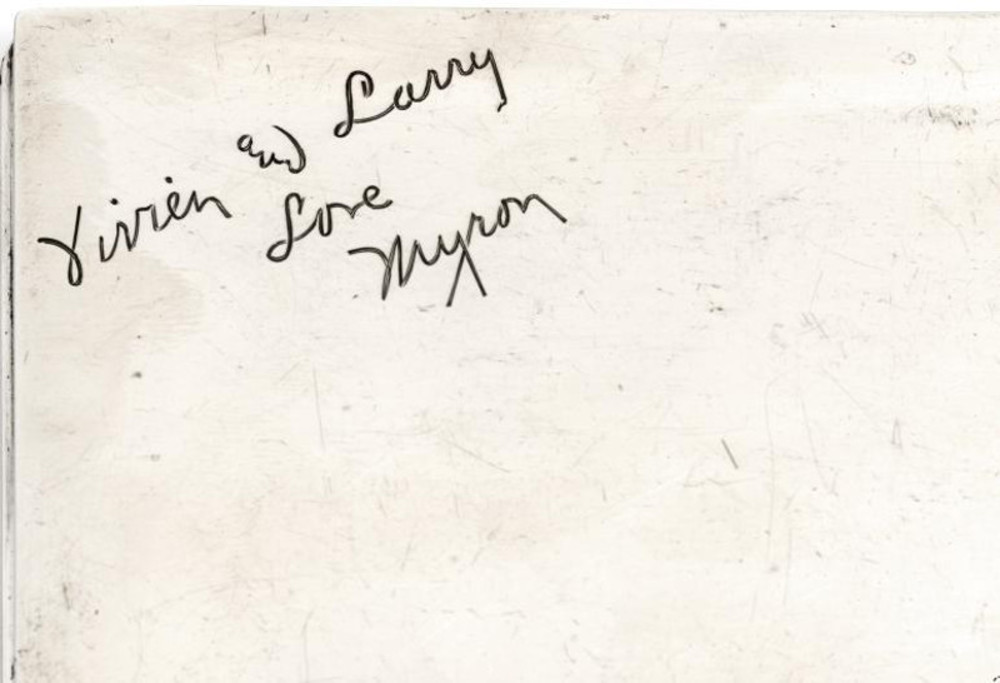 Vivien and Larry
Love
Myron